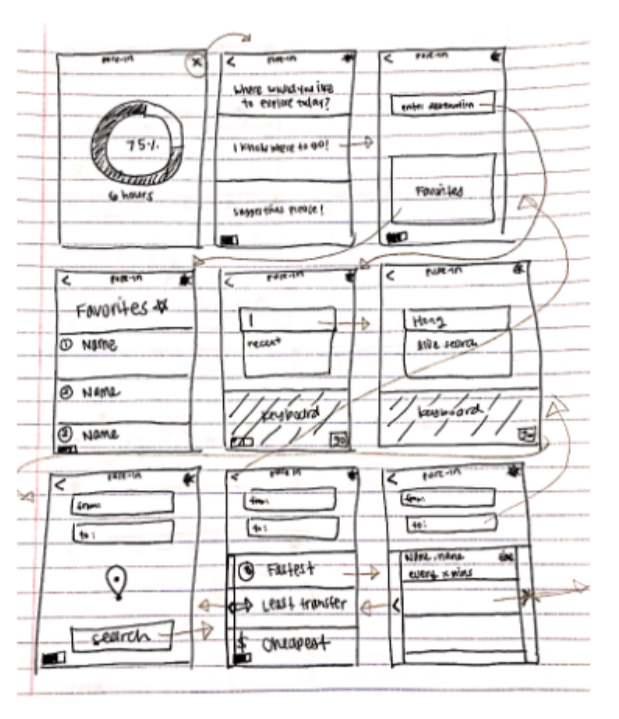 pure-in
x
75%
6 hours
<
pure-in
Where would you like
to explore today?
I know where to go!
suggestions please!
<
pure-in
enter destination
Favorites
<
pure-in
Favorites
① Name
② Name
③ Name
<
pure-in
recent
keyboard
go
<
pure-in
Hong
live search
keyboard
go
<
pure-in
from:
to:
search
<
pure in
from:
to:
Fastest
Least transfer
$ Cheapest
<
pure-in
from:
to:
Name, name
every x mins
<